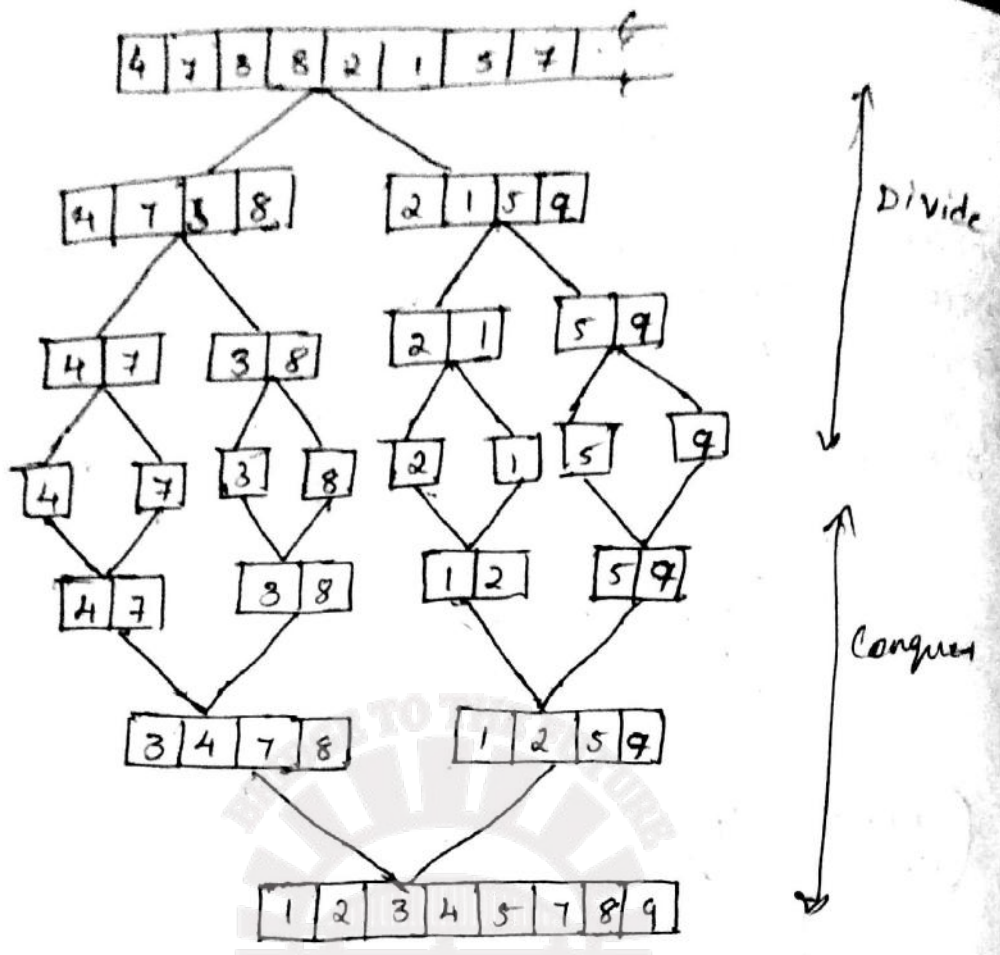 4 7 3 8 2 1 5 7
4 7 3 8 2 1 5 9
Divide
4 7 3 8 2 1 5 9
4 7 3 8 2 1 5 9
4 7 3 8 1 2 5 9
Conquer
3 4 7 8 1 2 5 9
1 2 3 4 5 7 8 9